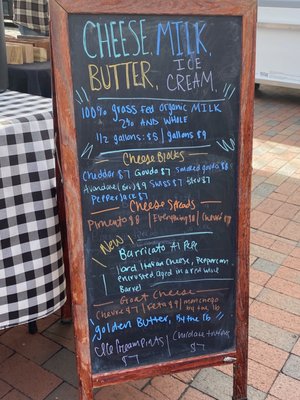 CHEESE, MILK,
BUTTER, ICE
CREAM.
100% grass fed organic MILK
2% AND WHOLE
1/2 gallons: $5 | gallons $9
Cheese Blocks
Cheddar $7 Gouda $7 Smoked gouda $8
$9 Swiss $7 Feta $7
Pepper Jack $7
Cheese Spreads
Pimento $8 | Everything $8 | Chevre $7
New
Barricato Al Pepe
Hard Italian Cheese, Peppercorn
encrusted aged in a red Whole
Barrel
Goat Cheese
Chevre $7 | Feta $9 | manchego
by the lb
golden Butter, By the lb
Ice Cream Pints | Chocolate truffles
$7 $7